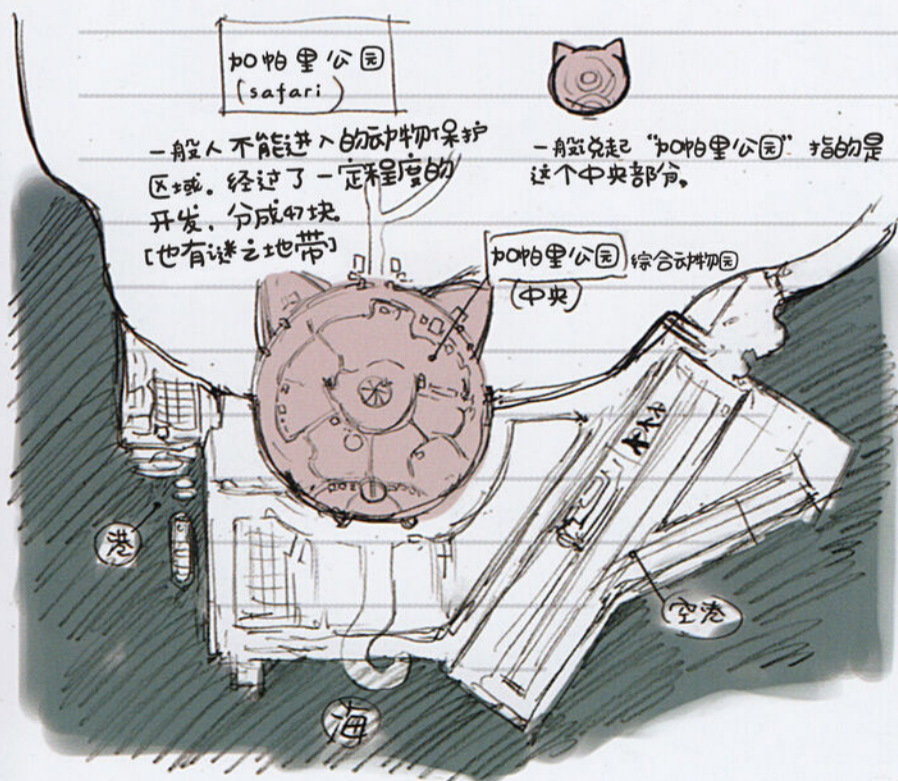 加帕里公园
(safari)
一般人不能进入的动物保护
区域。经过了一定程度的
开发,分成47块。
[也有谜之地带]
一般说起“加帕里公园”指的是
这个中央部分。
加帕里公园 综合动物园
(中央)
港
空港
海